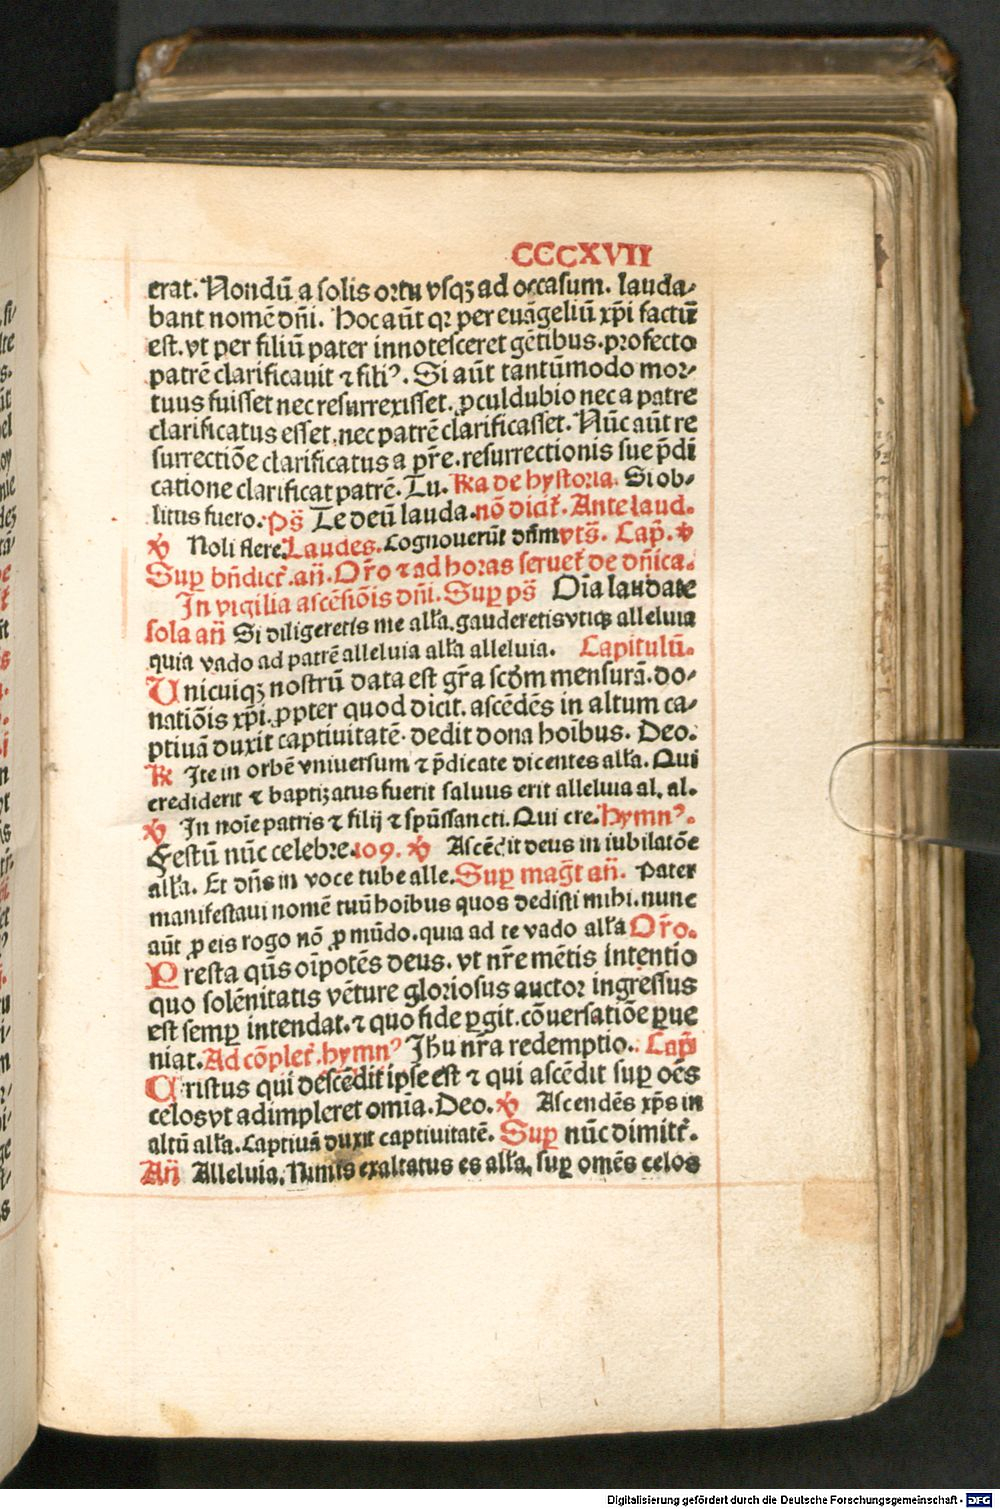 CCCXVII
erat. Nondū a solis ortu vsqꝫ ad occasum. lauda-
bant nomē dn̄i. Hoc aūt qꝛ per euāgeliū xp̄i factū
est. vt per filiū pater innotesceret gētibus. profecto
patrē clarificauit ⁊ filiꝰ. Si aūt tantūmodo mor-
tuus fuisset nec resurrexisset. ꝓculdubio nec a patre
clarificatus esset. nec patrē clarificasset. Nūc aūt re
surrectiōe clarificatus a pr̄e. resurrectionis sue p̄di
catione clarificat patrē. Tu. ℟a de hystoria. Si ob-
litus fuero. Ps̄ Te deū lauda. nō dicit̄. Ante laud.
℣ Noli flere. Laudes. Cognouerūt dn̄m vts̄. Cap̄. ℣
Suꝑ bn̄dict̄. an̄. Or̄o ⁊ ad horas seruet̄ de dn̄ica.
In vigilia ascēsiōis dn̄i. Suꝑ ps̄ Oīa laudate
sola an̄ Si diligeretis me all̄a. gauderetis vtiqꝫ alleluia
quia vado ad patrē alleluia all̄a alleluia. Capitulū.
Unicuiqꝫ nostrū data est gr̄a scd̄m mensurā. do-
natiōis xp̄i. ꝓpter quod dicit. ascēdēs in altum ca-
ptiuā duxit captiuitatē. dedit dona hoībus. Deo.
℟ Ite in orbē vniuersum ⁊ p̄dicate dicentes all̄a. Qui
crediderit ⁊ baptizatus fuerit saluus erit alleluia al. al.
℣ In noīe patris ⁊ filij ⁊ spūssancti. Qui cre. Hymnꝰ.
Festū nūc celebre. 109. ℣ Ascēdit deus in iubilatōe
all̄a. Et dn̄s in voce tube alle. Suꝑ maḡt an̄. Pater
manifestaui nomē tuū hoībus quos dedisti mihi. nunc
aūt ꝓ eis rogo nō ꝓ mūdo. quia ad te vado all̄a Or̄o.
Presta qūs oīpotēs deus. vt nr̄e mētis intentio
quo solēnitatis vēture gloriosus auctor ingressus
est semꝑ intendat. ⁊ quo fide ꝑgit. cōuersatiōe ꝑue
niat. Ad cōplet̄. hymnꝰ Jhu nr̄a redemptio. Cap̄
Cristus qui descēdit ipse est ⁊ qui ascēdit suꝑ oēs
celos vt adimpleret omīa. Deo. ℣ Ascendēs xp̄s in
altū all̄a. Captiuā duxit captiuitatē. Suꝑ nūc dimitt̄.
An̄ Alleluia. Nimis exaltatus es all̄a. suꝑ omēs celos
Digitalisierung gefördert durch die Deutsche Forschungsgemeinschaft - DFG